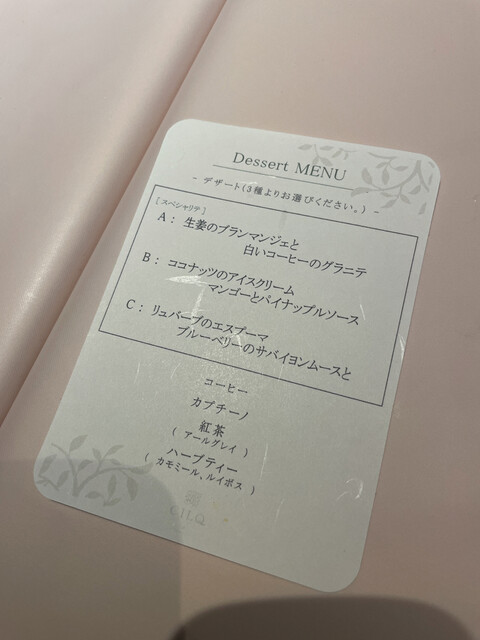 Dessert MENU
- デザート(3種よりお選びください。) -
[スペシャリテ]
A： 生姜のブランマンジェと
白いコーヒーのグラニテ
B： ココナッツのアイスクリーム
マンゴーとパイナップルソース
C： リュバーブのエスプーマ
ブルーベリーのサバイヨンムースと
コーヒー
カプチーノ
紅茶
( アールグレイ )
ハーブティー
( カモミール、ルイボス )